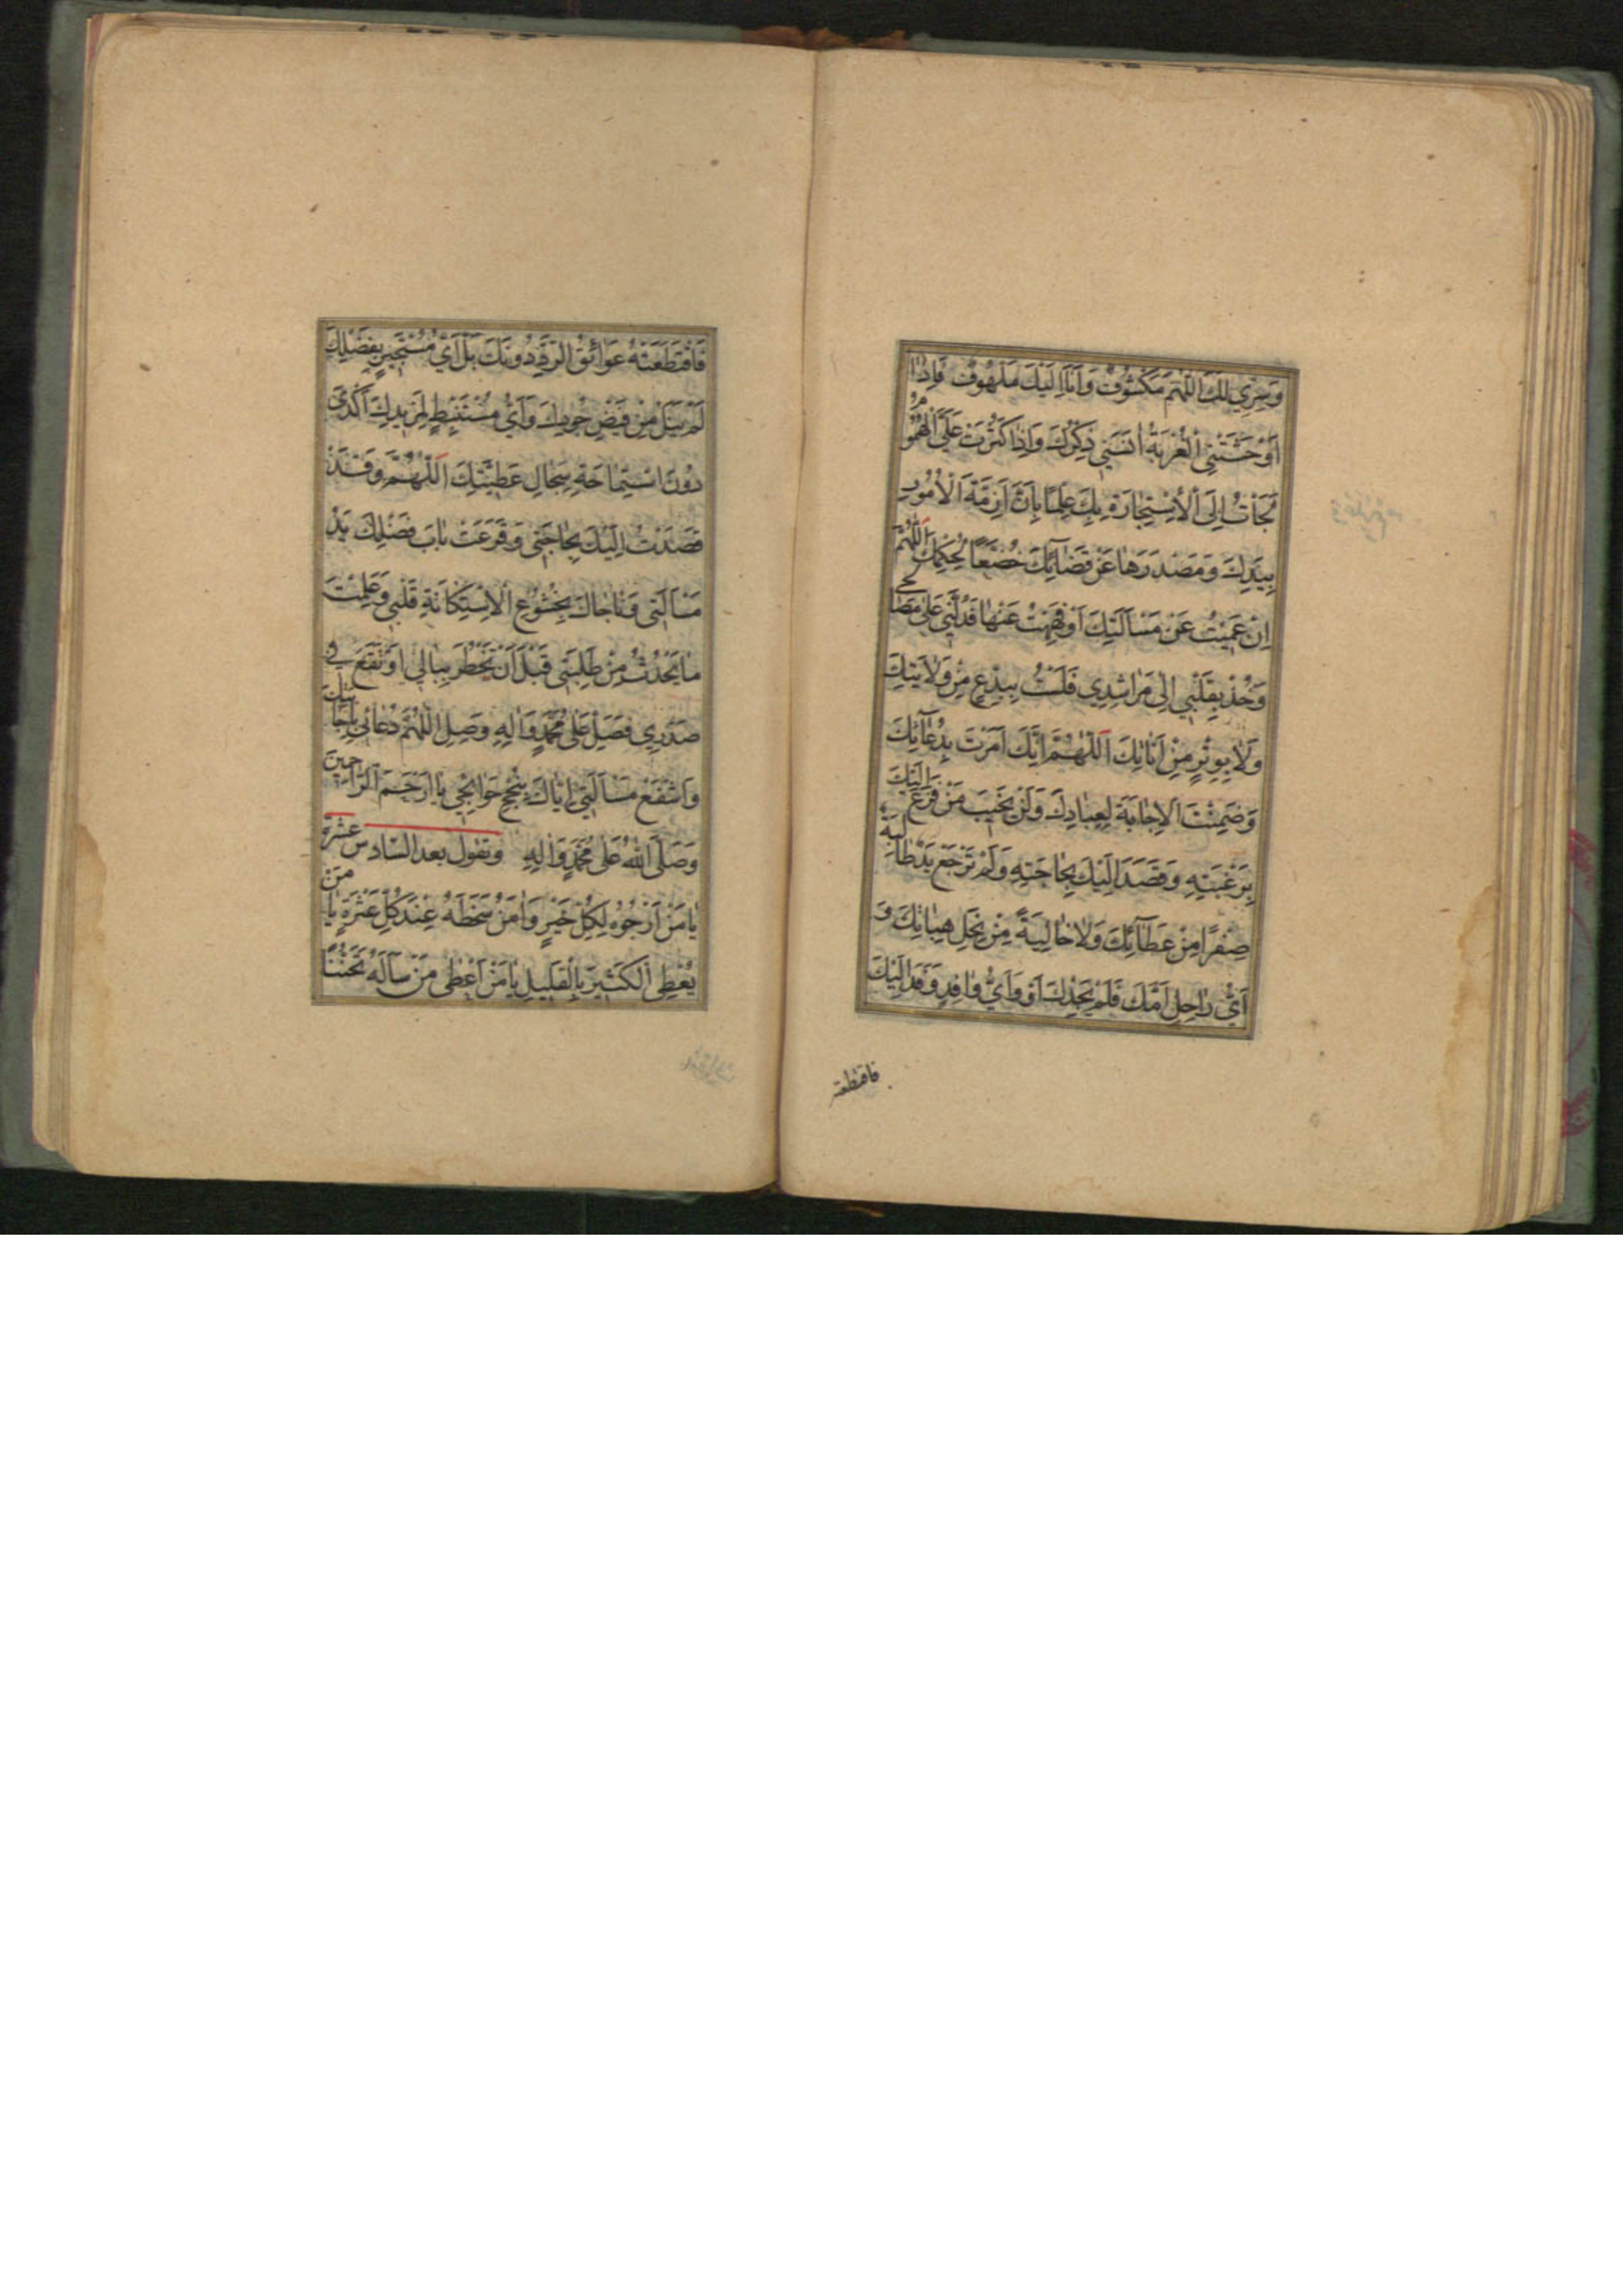 وَسِرِّي لَكَ اللّٰهُمَّ مَكْشُوفٌ وَاَنَا اِلَيْكَ مَلْهُوفٌ فَاِذٰا
اَوْحَشَتْنِي الْغُرْبَةُ اٰنَسَنِي ذِكْرُكَ وَاِذٰا كَثُرَتْ عَلَيَّ الْهُمُومُ
لَجَأْتُ اِلَى الْاِسْتِجٰارَةِ بِكَ عِلْمًا بِاَنَّ اَزِمَّةَ الْاُمُورِ
بِيَدِكَ وَمَصْدَرَهٰا عَنْ قَضٰائِكَ خُضَّعًا لِحُكْمِكَ اَللّٰهُمَّ
اِنْ عَمِيتُ عَنْ مَسْاَلَتِكَ اَوْ فَهِهْتُ عَنْهٰا فَدُلَّنِي عَلٰى مَصٰالِحِي
وَخُذْ بِقَلْبِي اِلٰى مَرٰاشِدِي فَلَسْتُ بِبِدْعٍ مِنْ وَلٰايَتِكَ
وَلٰا بِوِتْرٍ مِنْ اَنٰاتِكَ اَللّٰهُمَّ اِنَّكَ اَمَرْتَ بِدُعٰائِكَ
وَضَمِنْتَ الْاِجٰابَةَ لِعِبٰادِكَ وَلَنْ يَخِيبَ مَنْ فَزِعَ اِلَيْكَ
بِرَغْبَتِهِ وَقَصَدَ اِلَيْكَ بِحٰاجَتِهِ وَلَمْ تَرْجِعْ يَدٌ طٰالِبَةٌ
صِفْرًا مِنْ عَطٰائِكَ وَلٰا خٰالِيَةً مِنْ نِحَلِ هِبٰاتِكَ وَ
اَيُّ رٰاحِلٍ اَمَّكَ فَلَمْ يَجِدْكَ اَوْ وَاَيُّ وٰافِدٍ وَفَدَ اِلَيْكَ
فاقتطعته
فَاقْتَطَعَتْهُ عَوٰائِقُ الرَّدِّ دُونَكَ بَلْ اَيُّ مُسْتَجِيرٍ بِفَضْلِكَ
لَمْ يَنَلْ مِنْ فَيْضِ جُودِكَ وَاَيُّ مُسْتَنْبِطٍ لِمَزِيدِكَ اَكْدٰى
دُونَ اسْتِمٰاحَةِ سِجٰالِ عَطِيَّتِكَ اَللّٰهُمَّ وَقَدْ
قَصَدْتُ اِلَيْكَ بِحٰاجَتِي وَقَرَعَتْ بٰابَ فَضْلِكَ يَدُ
مَسْاَلَتِي وَنٰاجٰاكَ بِخُشُوعِ الْاِسْتِكٰانَةِ قَلْبِي وَعَلِمْتَ
مٰا يَحْدُثُ مِنْ طَلِبَتِي قَبْلَ اَنْ يَخْطُرَ بِبٰالِي اَوْ تَقَعَ فِي
صَدْرِي فَصَلِّ عَلٰى مُحَمَّدٍ وَاٰلِهِ وَصِلِ اللّٰهُمَّ دُعٰائِي بِاِجٰابَتِكَ
وَاشْفَعْ مَسْاَلَتِي اِيّٰاكَ بِنُجْحِ حَوٰائِجِي يٰا اَرْحَمَ الرّٰاحِمِينَ
وَصَلَّى اللّٰهُ عَلٰى مُحَمَّدٍ وَاٰلِهِ وتقول بعد السّادس عشرة
يٰا مَنْ اَرْجُوهُ لِكُلِّ خَيْرٍ وَاٰمَنُ سَخَطَهُ عِنْدَ كُلِّ عَثْرَةٍ يٰا مَنْ
يُعْطِي الْكَثِيرَ بِالْقَلِيلِ يٰا مَنْ اَعْطٰى مَنْ سَاَلَهُ تَحَنُّنًا